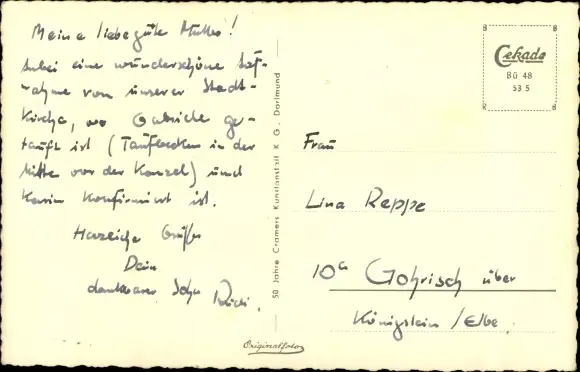 Meine liebe gute Mutter!
Anbei eine wunderschöne Auf-
nahme von unserer Stadt-
kirche, wo Gabriele ge-
tauft ist (Taufbecken in der
Mitte vor der Kanzel) und
Karin konfirmiert ist.
Herzliche Grüße
Dein
dankbarer Sohn Rudi.
50 Jahre Cramers Kunstanstalt K G. Dortmund
Originalfoto
Cekade
Bü 48
53 5
Frau
Lina Reppe
10a Gohrisch über
Königstein /Elbe.